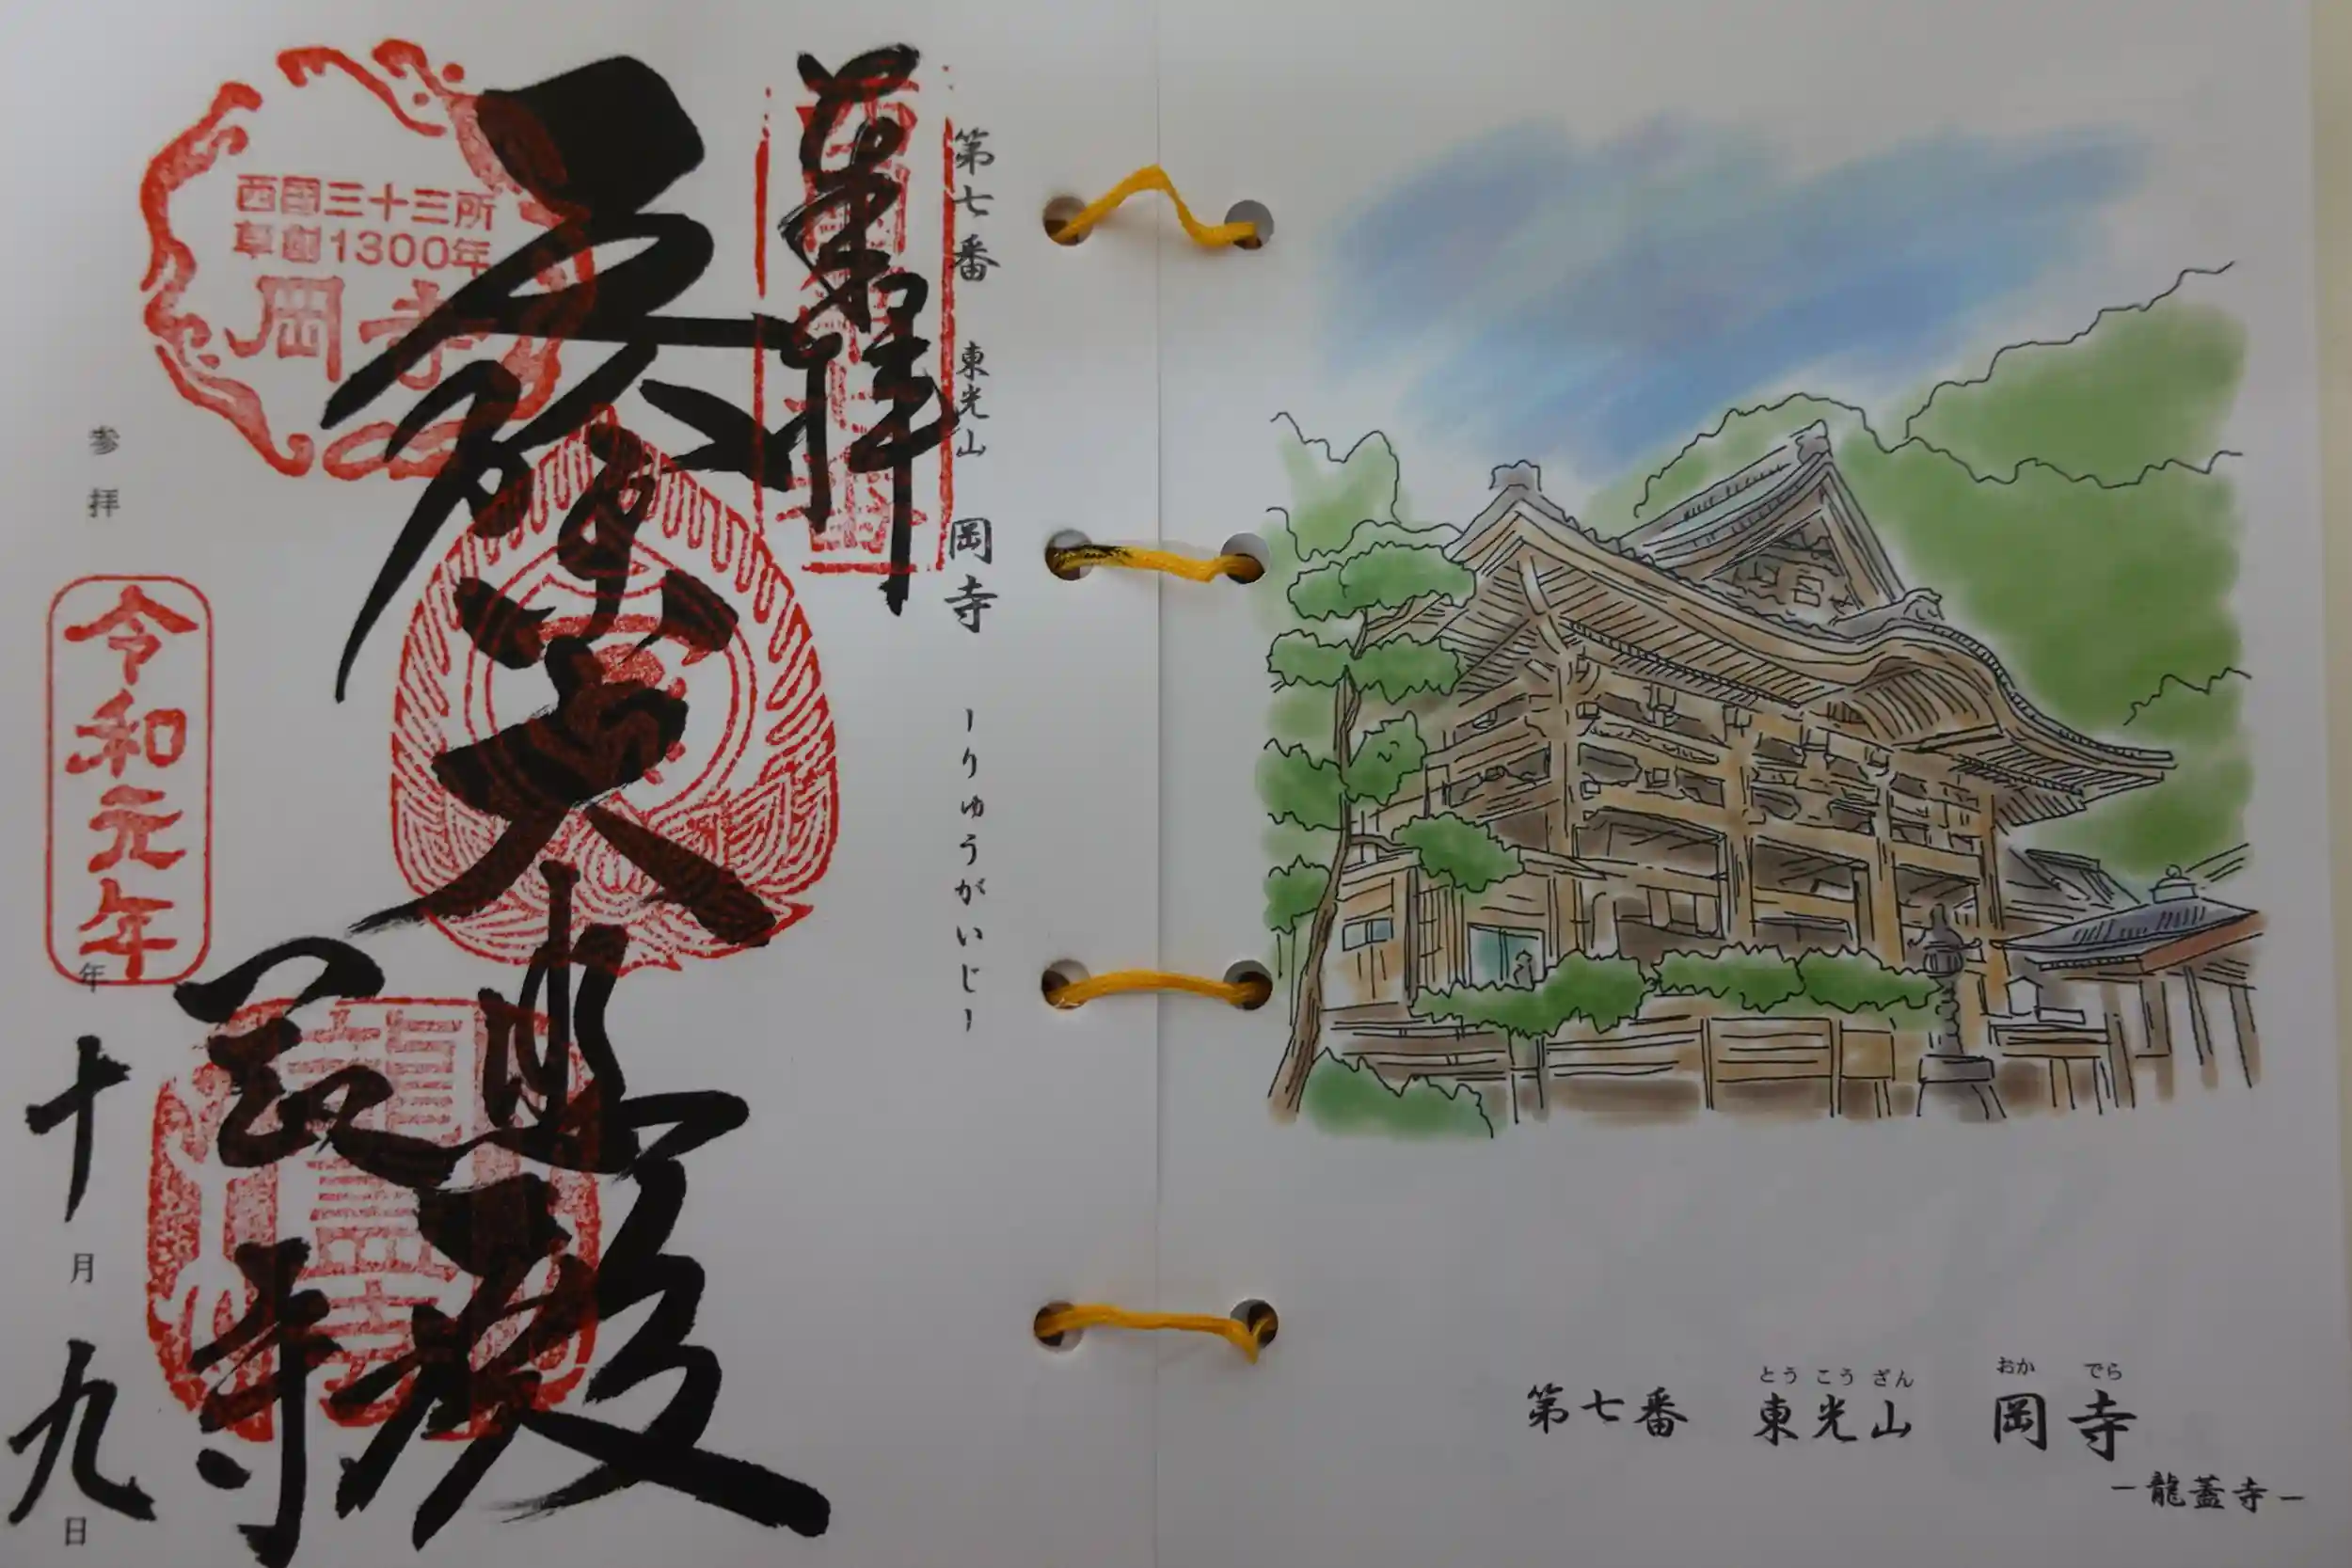 第七番 東光山 岡寺 ーりゅうがいじー
奉拝
西国三十三所
草創1300年
岡寺
厄除大悲殿
岡寺
参拝 令和元年 年 十月 九日
とうこうざん おかでら
第七番 東光山 岡寺
ー龍蓋寺ー